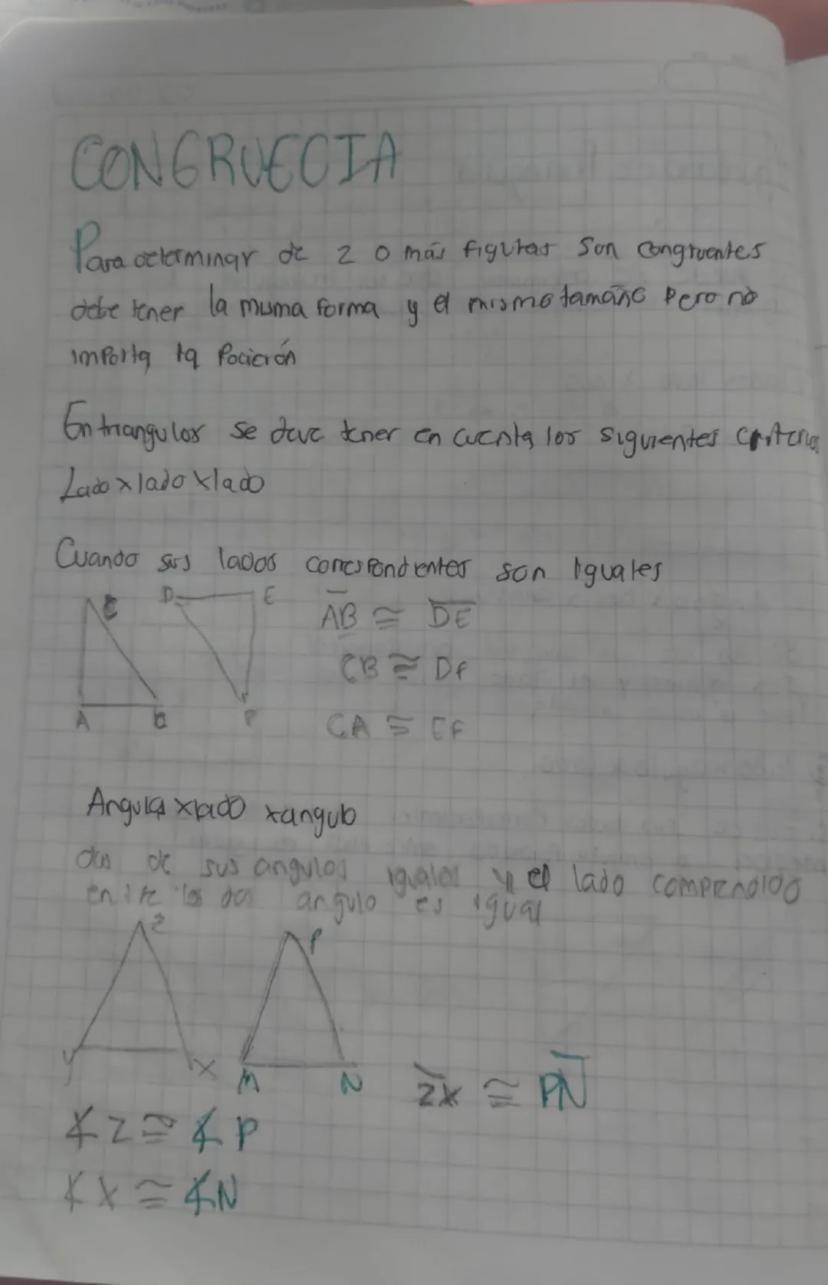 CONGRUECIA
Para determinar de 2 o más figuras son congruentes
debe tener la misma forma y el mismo tamaño pero no
importa la Poición
En triangulos se deve tener en cuenta los siguientes criterios
Lado x lado x lado
Cuando sus lados correspondentes son iguales
C D E
A B F
AB ≅ DE
CB ≅ DF
CA ≅ EF
Angulo x lado x angulo
dos de sus angulos iguales y el lado comprendido
entre los dos angulo es igual
Z P
Y X M N
ZX ≅ PN
∡ Z ≅ ∡ P
∡ X ≅ ∡ N